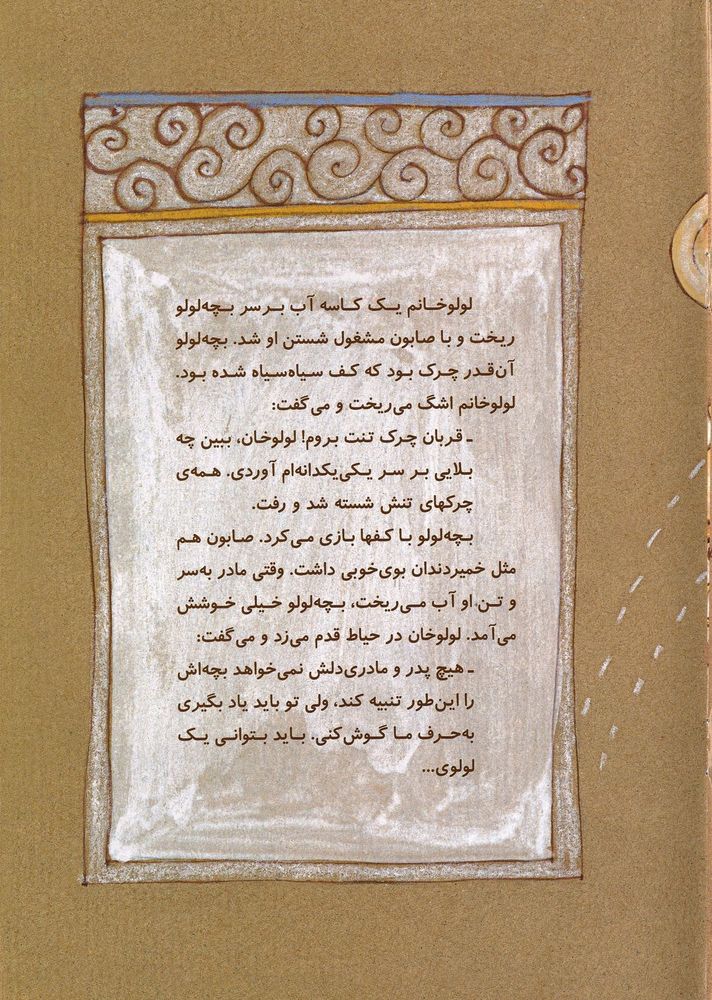 لولوخانم یک کاسه آب بر سر بچه‌لولو
ریخت و با صابون مشغول شستن او شد. بچه‌لولو
آن‌قدر چرک بود که کف سیاه‌سیاه شده بود.
لولوخانم اشگ می‌ریخت و می‌گفت:
ـ قربان چرک تنت بروم! لولوخان، ببین چه
بلایی بر سر یکی‌یکدانه‌ام آوردی. همه‌ی
چرکهای تنش شسته شد و رفت.
بچه‌لولو با کفها بازی می‌کرد. صابون هم
مثل خمیردندان بوی‌خوبی داشت. وقتی مادر به‌سر
و تن او آب می‌ریخت، بچه‌لولو خیلی خوشش
می‌آمد. لولوخان در حیاط قدم می‌زد و می‌گفت:
ـ هیچ پدر و مادری‌دلش نمی‌خواهد بچه‌اش
را این‌طور تنبیه کند، ولی تو باید یاد بگیری
به‌حرف ما گوش‌کنی. باید بتوانی یک
لولوی...